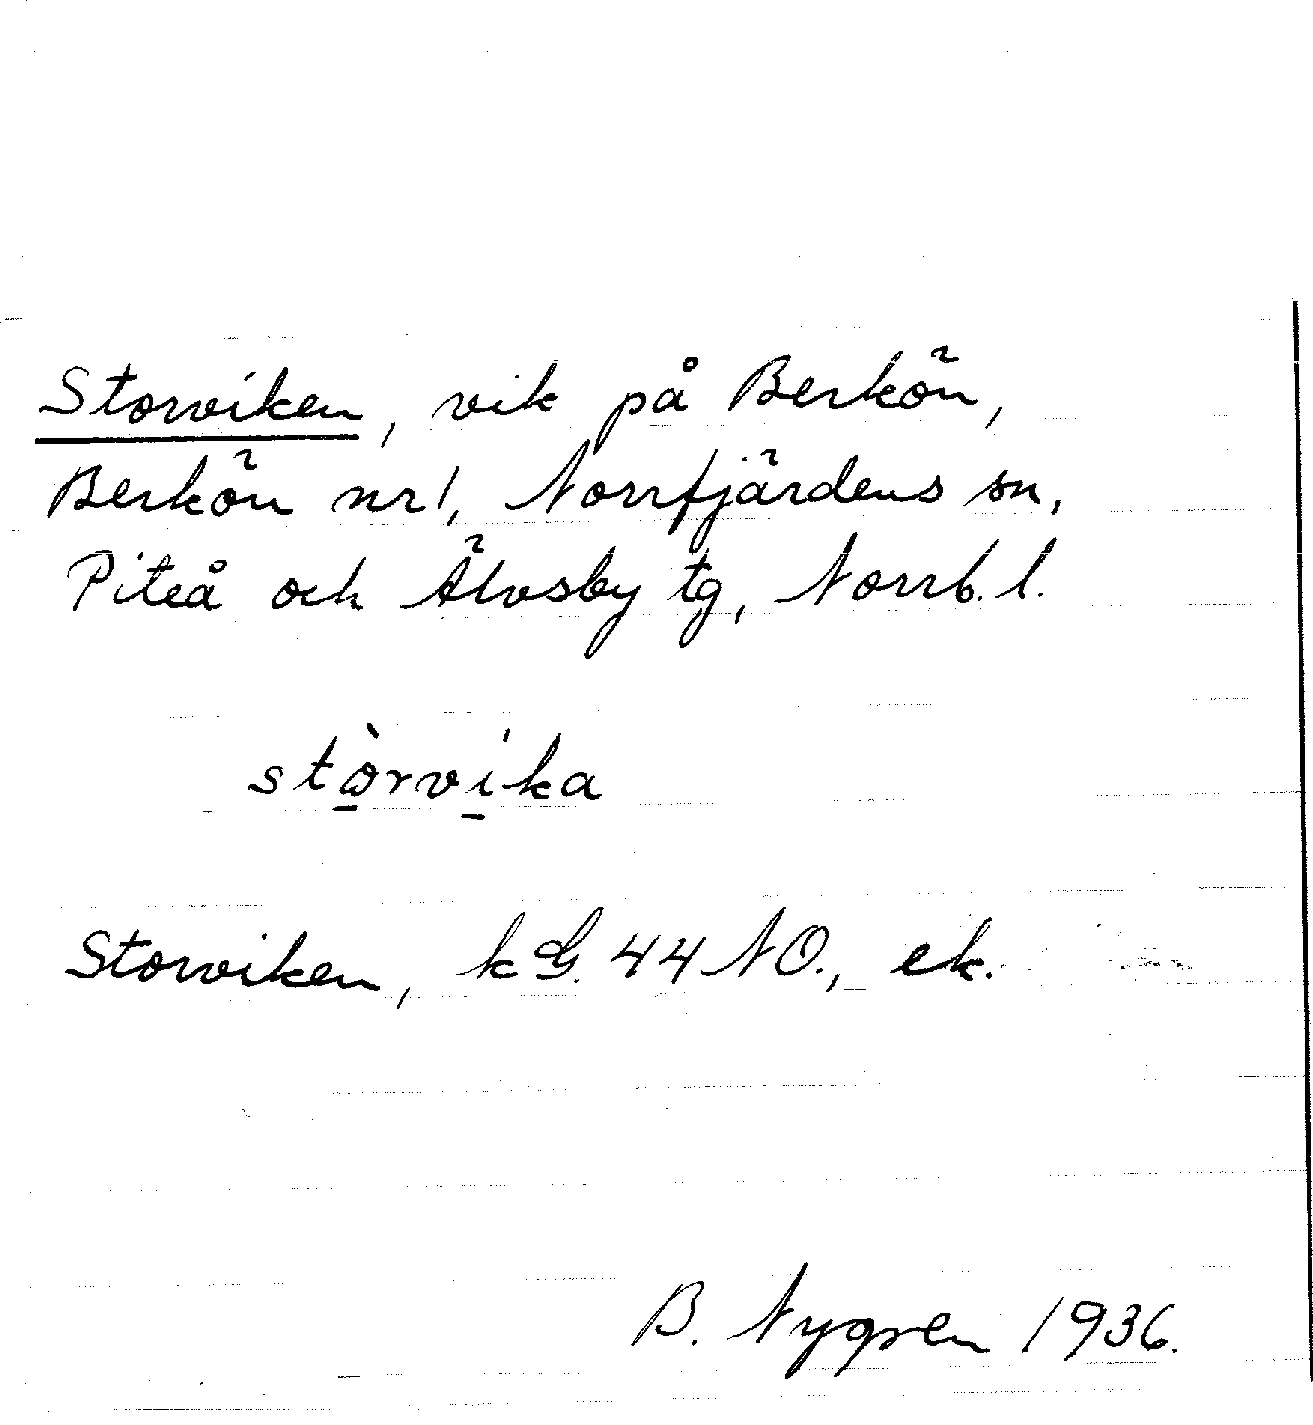 Storviken, vik på Berkön,
Berkön nr 1, Norrfjärdens sn,
Piteå och Älvsby tg, Norrb. l.
stò̠rvi̠ka
Storviken, kG. 44 NO., ek.
B. Nygren 1936.